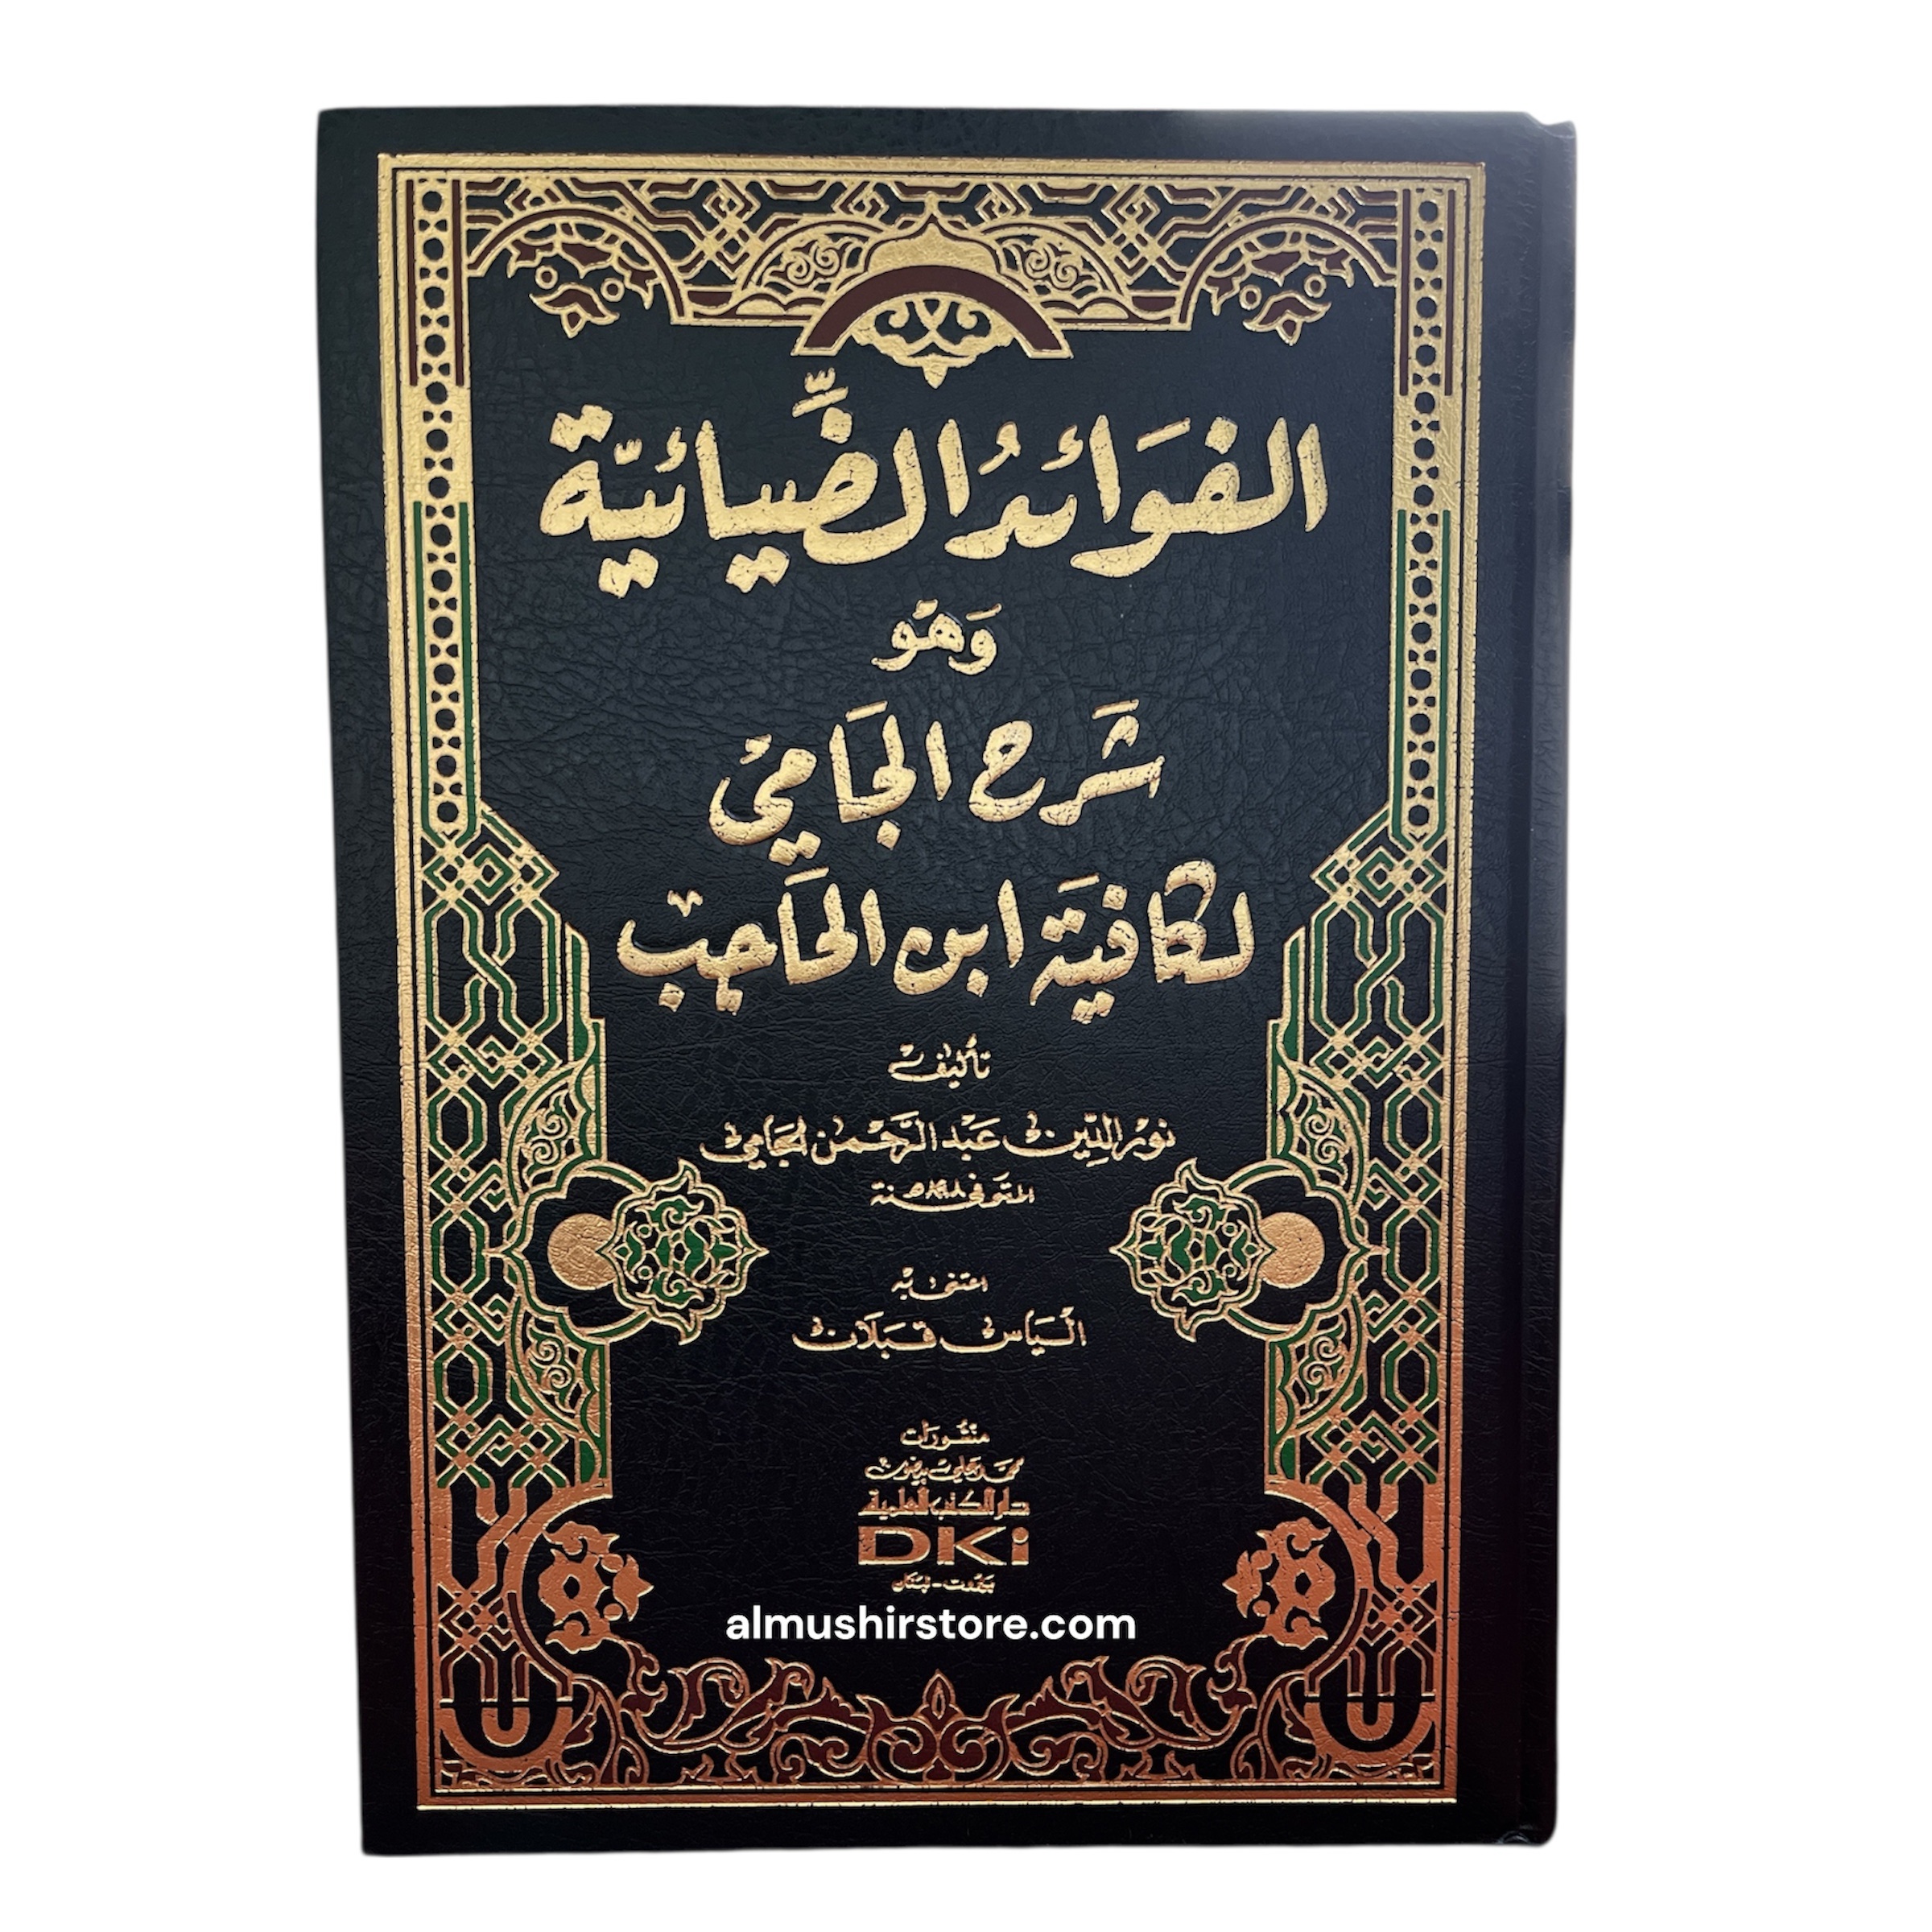 الفَوَائدُ الضِّيائيّة
وَهُو
شَرح الجَامي
لكافيَة ابن الحَاجِب
تأليف
نور الدّين عَبْد الرَّحمن الجَامي
المتوفى سنة ٨٩٨هـ
اعتنى به
اليَاس قبَلان
منشورات
محمد علي بيضون
دار الكتب العلمية
DKi
بيروت - لبنان
almushirstore.com